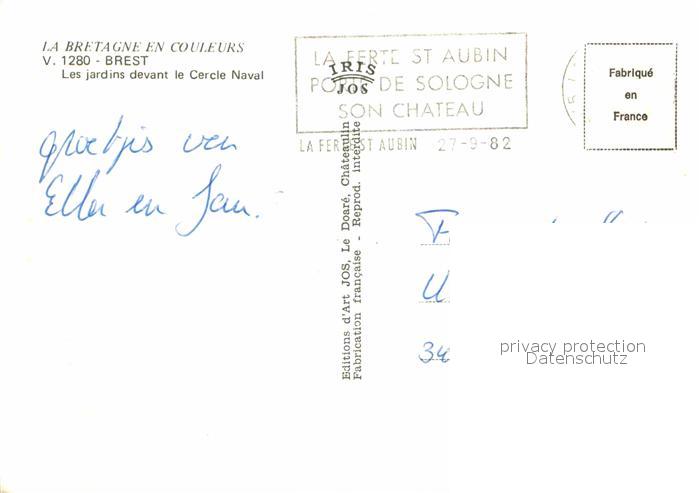 LA BRETAGNE EN COULEURS
V. 1280 - BREST
Les jardins devant le Cercle Naval
LA FERTE ST AUBIN
PORTE DE SOLOGNE
SON CHATEAU
LA FERTE ST AUBIN 27-9-82
IRIS
JOS
Fabriqué
en
France
groetjes van
Ella en Jan.
Editions d'Art JOS, Le Doaré, Châteaulin
Fabrication française - Reprod. interdite
F
U
privacy protection
Datenschutz